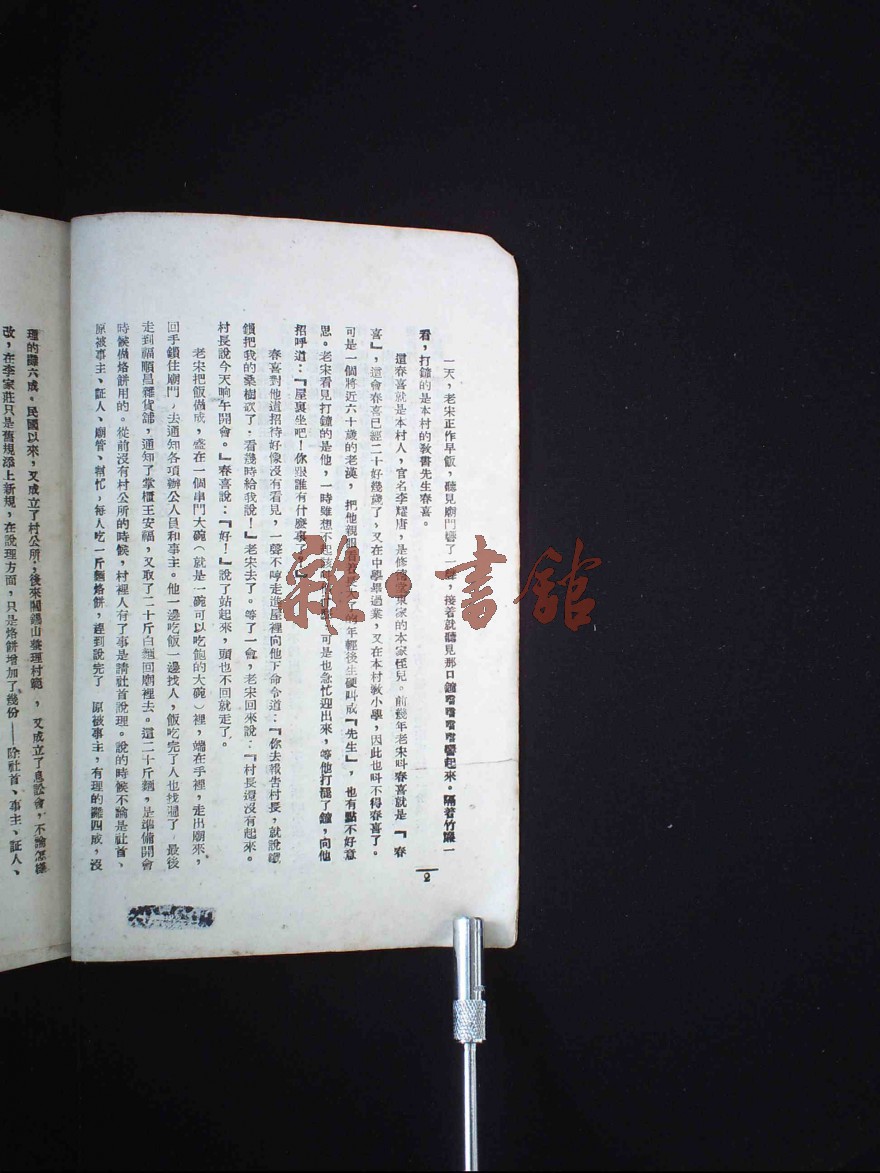 一天，老宋正作早飯，聽見廟門響了一聲，接着就聽見那口鐘噹噹噹噹響起來。隔着竹簾一
看，打鐘的是本村的教書先生春喜。
這春喜就是本村人，官名李耀唐，是修德堂東家的本家侄兒。前幾年老宋叫春喜就是『春
喜』，這會春喜已經二十好幾歲了，又在中學畢過業，又在本村教小學，因此也叫不得春喜了。
可是一個將近六十歲的老漢，把他親眼看着
年輕後生硬叫成『先生』，也有點不好意
思。老宋看見打鐘的是他，一時雖想不起該
可是也急忙迎出來，等他打罷了鐘，向他
招呼道：『屋裏坐吧！你跟誰有什麼事了？』
春喜對他這招待好像沒有看見，一聲不哼走進屋裡向他下命令道：『你去報告村長，就說鐵
鎖把我的桑樹砍了，看幾時給我說！』老宋去了。等了一會，老宋回來說：『村長還沒有起來。
村長說今天晌午開會。』春喜說：『好！』說了站起來，頭也不回就走了。
老宋把飯做成，盛在一個串門大碗（就是一碗可以吃飽的大碗）裡，端在手裡，走出廟來，
回手鎖住廟門，去通知各項辦公人員和事主。他一邊吃飯一邊找人，飯吃完了人也找遍了，最後
走到福順昌雜貨舖，通知了掌櫃王安福，又取了二十斤白麵回廟裡去。這二十斤麵，是準備開會
時候做烙餅用的。從前沒有村公所的時候，村裡人有了事是請社首說理。說的時候不論是社首、
原被事主、証人、廟管、幫忙，每人吃一斤麵烙餅，趕到說完了 原被事主，有理的攤四成，沒
2
理的攤六成。民國以來，又成立了村公所；後來閻錫山整理村範，又成立了息訟會，不論怎樣
改，在李家莊只是舊規添上新規，在說理方面，只是烙餅增加了幾份——除社首、事主、証人、
雜·書館